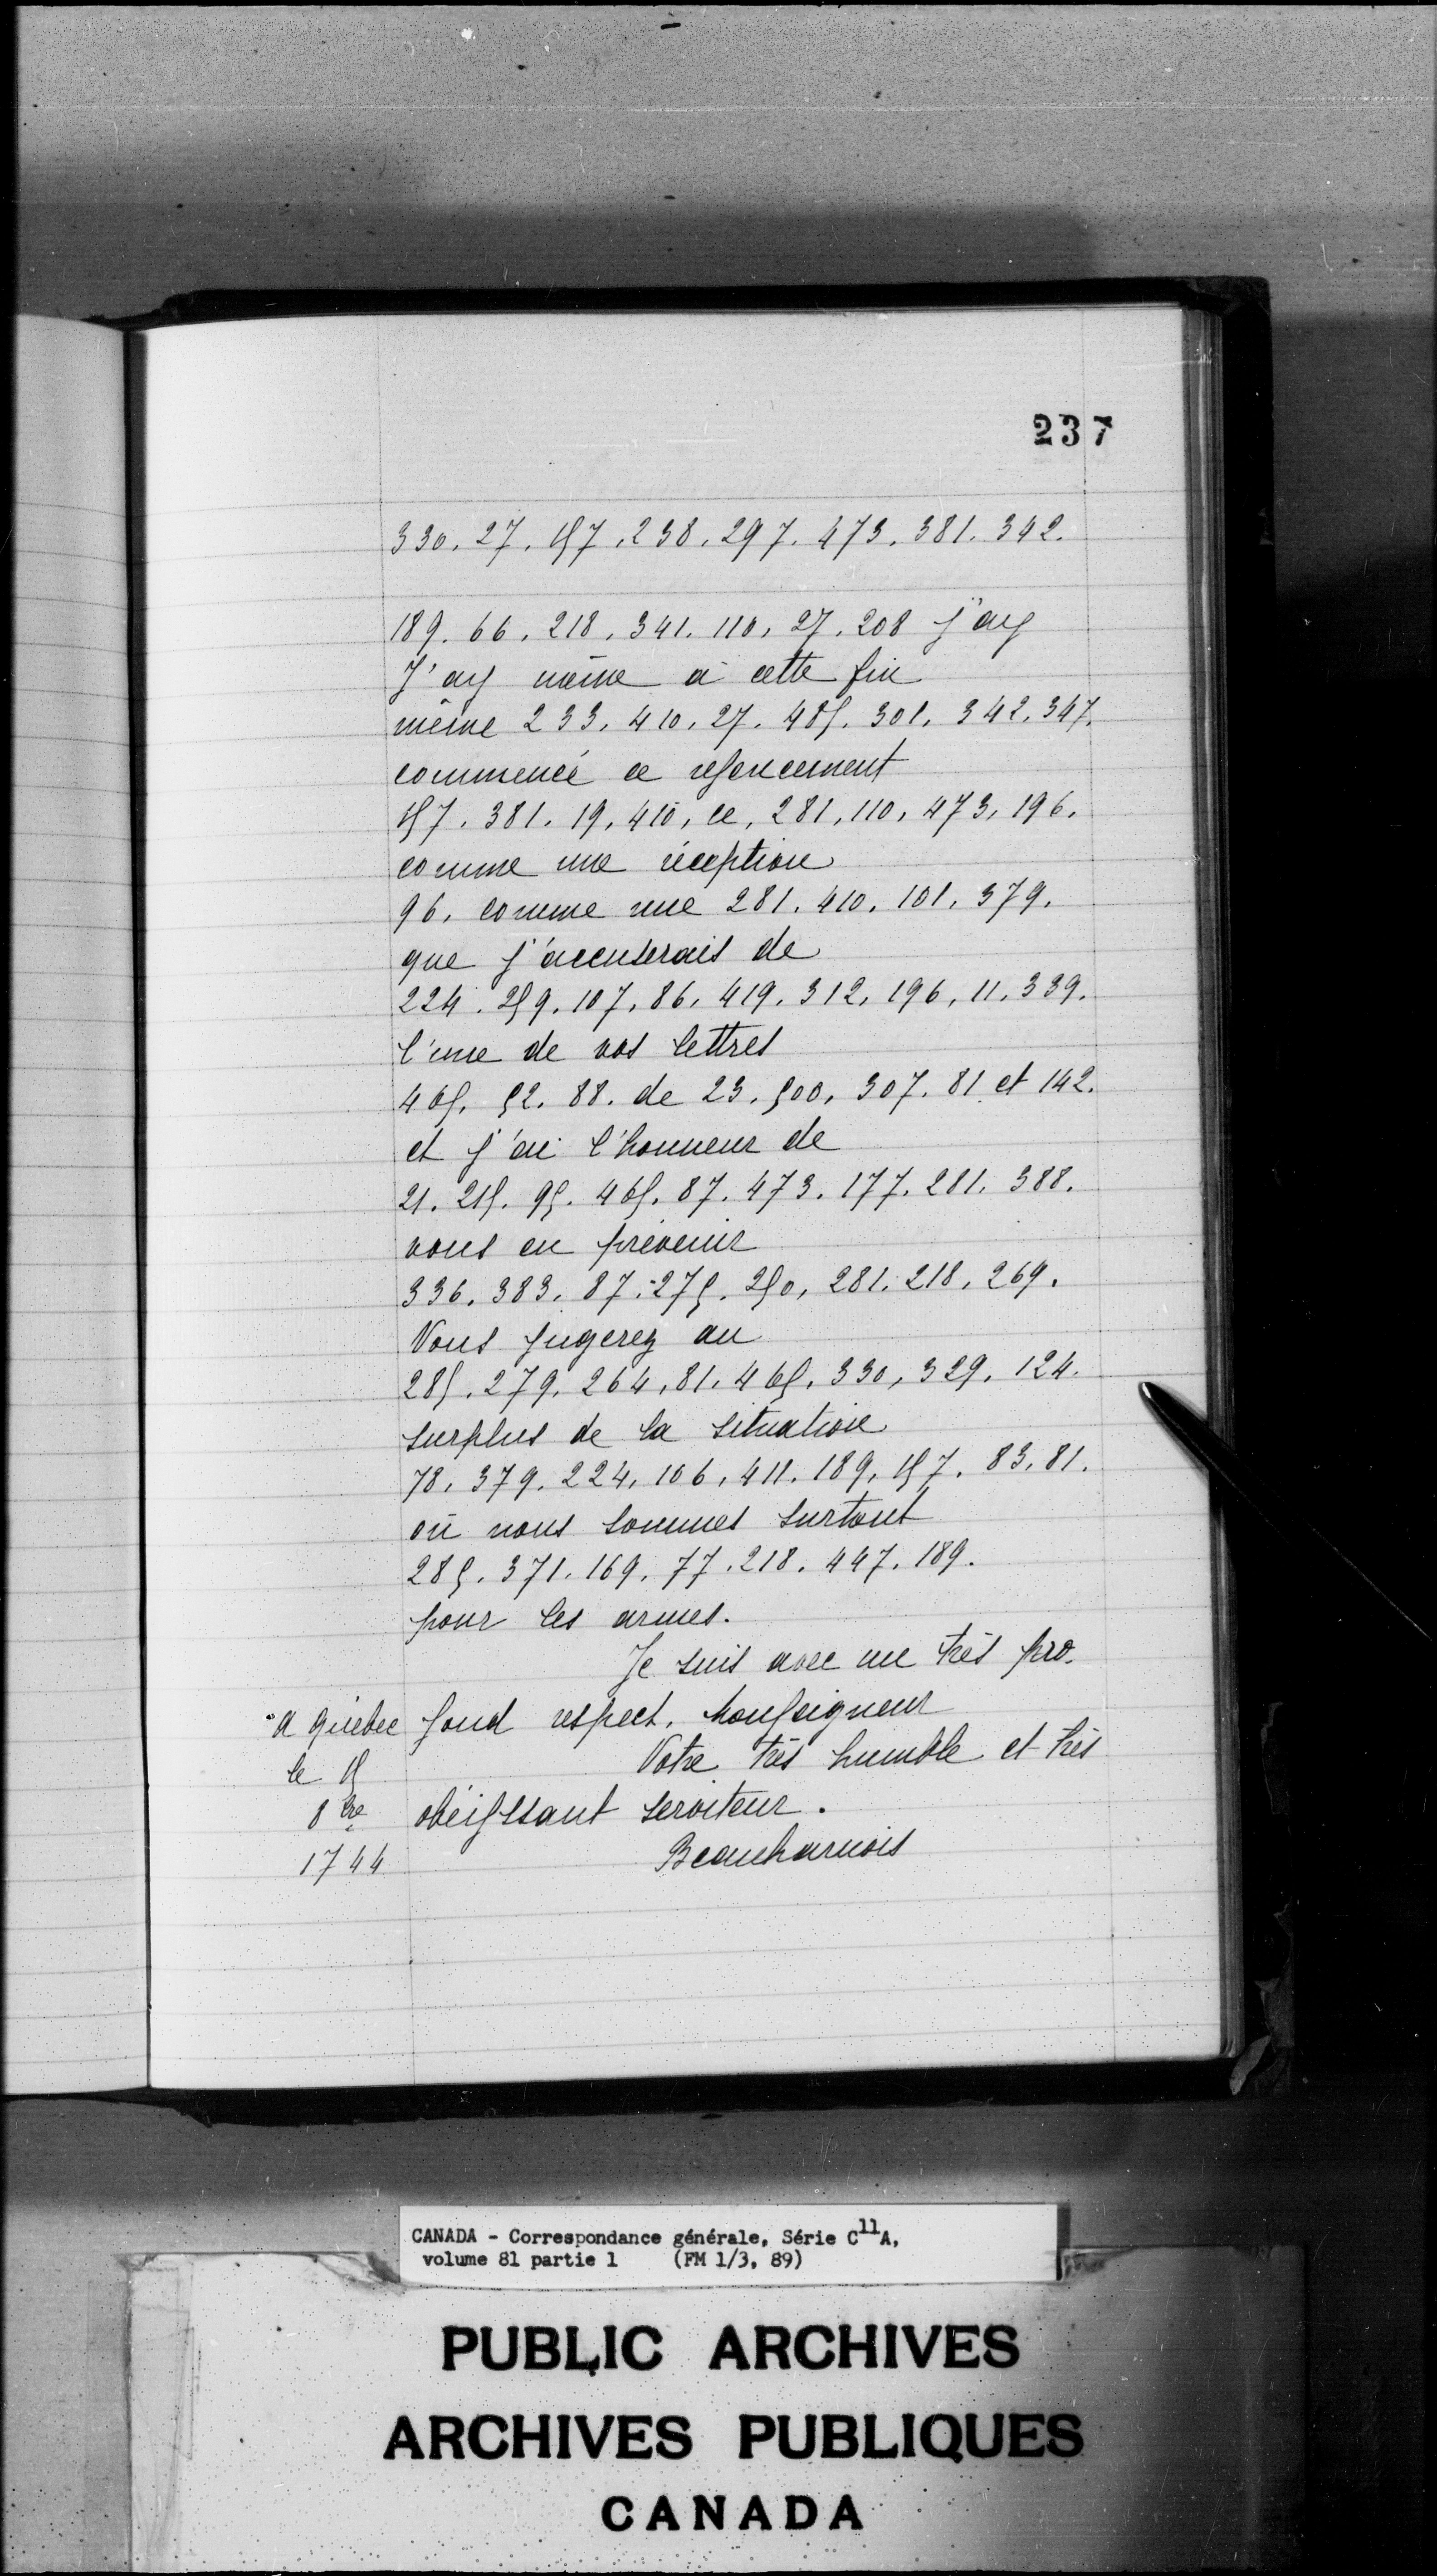 237
330. 27. 157. 238. 297. 473. 381. 342.
189. 66. 218. 341. 110. 27. 208 j'ay
J'ay même à cette fin
même 233. 410. 27. 485. 301. 342. 347.
commencé ce
157. 381. 19. 410, ce, 281, 110, 473, 196.
comme une réception
96, comme une 281. 410. 101. 379.
que j'accuserais de
224. 259. 107. 86. 419. 312. 196, 11. 339.
l'une de vos lettres
465. 52. 88. de 23. 500, 307. 81 et 142.
et j'ai l'honneur de
21. 215. 95. 465. 87. 473. 177. 281. 388.
vous en prévenir
336. 383. 87. 275. 250, 281. 218. 269.
Vous jugerez au
285. 279. 264, 81. 465. 330, 329. 124.
surplus de la situation
78. 379. 224, 106, 411. 189, 157. 83. 81.
où nous sommes surtout
285. 371. 169. 77. 218. 447. 189.
pour les armes.
Je suis avec un très pro-
a québec fond respect, Monseigneur
le 15 Votre très humble et très
8bre obéissant serviteur.
1744 Beauharnois
CANADA - Correspondance générale, Série C11A,
volume 81 partie 1 (FM 1/3, 89)
PUBLIC ARCHIVES
ARCHIVES PUBLIQUES
CANADA